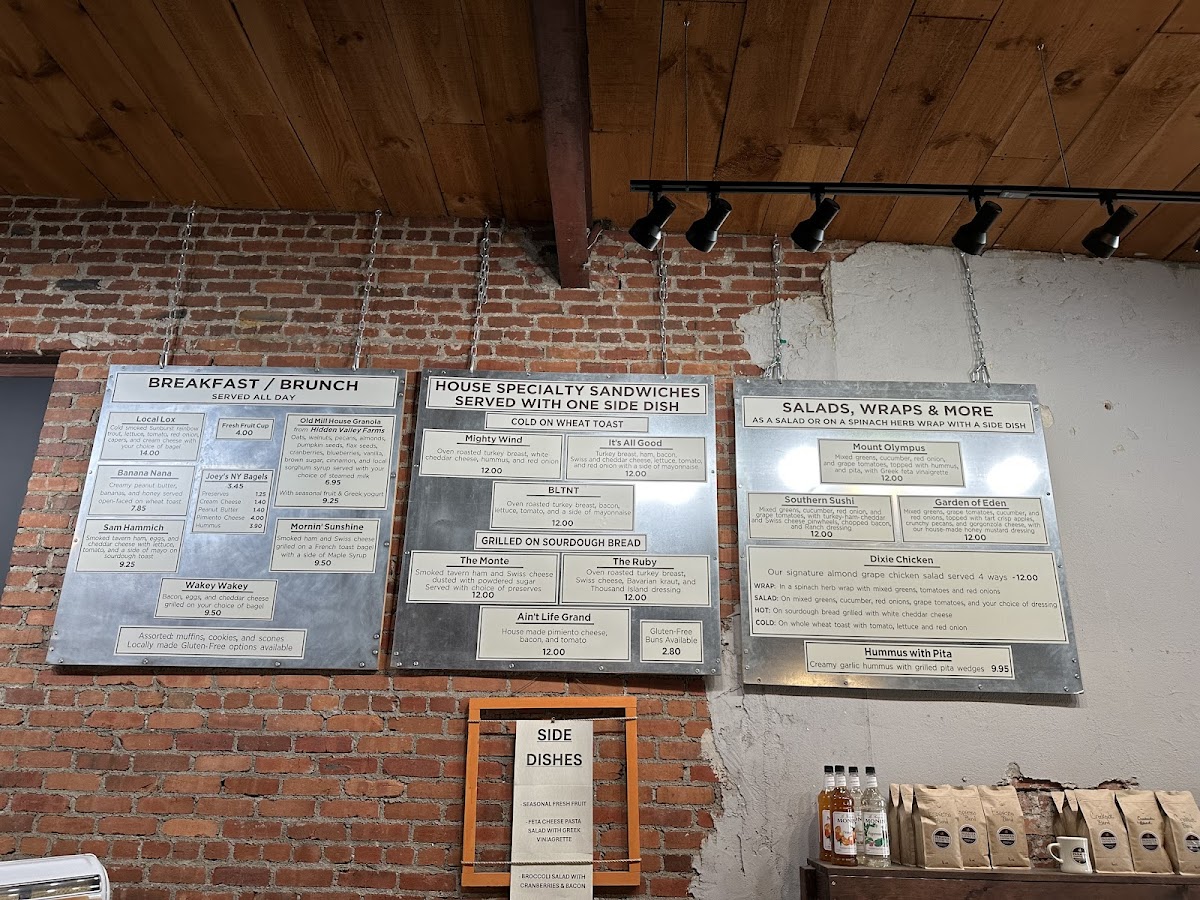 BREAKFAST / BRUNCH
SERVED ALL DAY
Local Lox
Cold smoked sunburst rainbow
trout, lettuce, tomato, red onion,
capers, and cream cheese with
your choice of bagel
14.00
Fresh Fruit Cup
4.00
Old Mill House Granola
from Hidden Valley Farms
Oats, walnuts, pecans, almonds,
pumpkin seeds, flax seeds,
cranberries, blueberries, vanilla,
brown sugar, cinnamon, and local
sorghum syrup served with your
choice of steamed milk
6.95
With seasonal fruit & Greek yogurt
9.25
Banana Nana
Creamy peanut butter,
bananas, and honey served
open-faced on wheat toast
7.85
Joey's NY Bagels
3.45
Preserves 1.25
Cream Cheese 1.40
Peanut Butter 1.40
Pimiento Cheese 4.00
Hummus 3.90
Sam Hammich
Smoked tavern ham, eggs, and
cheddar cheese with lettuce,
tomato, and a side of mayo on
sourdough toast
9.25
Mornin' Sunshine
Smoked ham and Swiss cheese
grilled on a French toast bagel
with a side of Maple Syrup
9.50
Wakey Wakey
Bacon, eggs, and cheddar cheese
grilled on your choice of bagel
9.50
Assorted: muffins, cookies, and scones
Locally made Gluten-Free options available
HOUSE SPECIALTY SANDWICHES
SERVED WITH ONE SIDE DISH
COLD ON WHEAT TOAST
Mighty Wind
Oven roasted turkey breast, white
cheddar cheese, hummus, and red onion
12.00
It's All Good
Turkey breast, ham, bacon,
Swiss and cheddar cheese, lettuce, tomato,
and red onion with a side of mayonnaise
12.00
BLTNT
Oven roasted turkey breast, bacon,
lettuce, tomato, and a side of mayonnaise
12.00
GRILLED ON SOURDOUGH BREAD
The Monte
Smoked tavern ham and Swiss cheese
dusted with powdered sugar
Served with choice of preserves
12.00
The Ruby
Oven roasted turkey breast,
Swiss cheese, Bavarian kraut, and
Thousand Island dressing
12.00
Ain't Life Grand
House made pimiento cheese,
bacon, and tomato
12.00
Gluten-Free
Buns Available
2.80
SALADS, WRAPS & MORE
AS A SALAD OR ON A SPINACH HERB WRAP WITH A SIDE DISH
Mount Olympus
Mixed greens, cucumber, red onion,
and grape tomatoes, topped with hummus,
and pita, with Greek feta vinaigrette
12.00
Southern Sushi
Mixed greens, cucumber, red onion, and
grape tomatoes, with turkey-ham-cheddar
and Swiss cheese pinwheels, chopped bacon,
and Ranch dressing
12.00
Garden of Eden
Mixed greens, grape tomatoes, cucumber, and
red onions, topped with tart crisp apples,
crunchy pecans, and gorgonzola cheese, with
our house-made honey mustard dressing
12.00
Dixie Chicken
Our signature almond grape chicken salad served 4 ways -12.00
WRAP: In a spinach herb wrap with mixed greens, tomatoes and red onions
SALAD: On mixed greens, cucumber, red onions, grape tomatoes, and your choice of dressing
HOT: On sourdough bread grilled with white cheddar cheese
COLD: On whole wheat toast with tomato, lettuce and red onion
Hummus with Pita
Creamy garlic hummus with grilled pita wedges 9.95
SIDE
DISHES
- SEASONAL FRESH FRUIT
- FETA CHEESE PASTA
SALAD WITH GREEK
VINIAGRETTE
- BROCCOLI SALAD WITH
CRANBERRIES & BACON
MONIN
MONIN